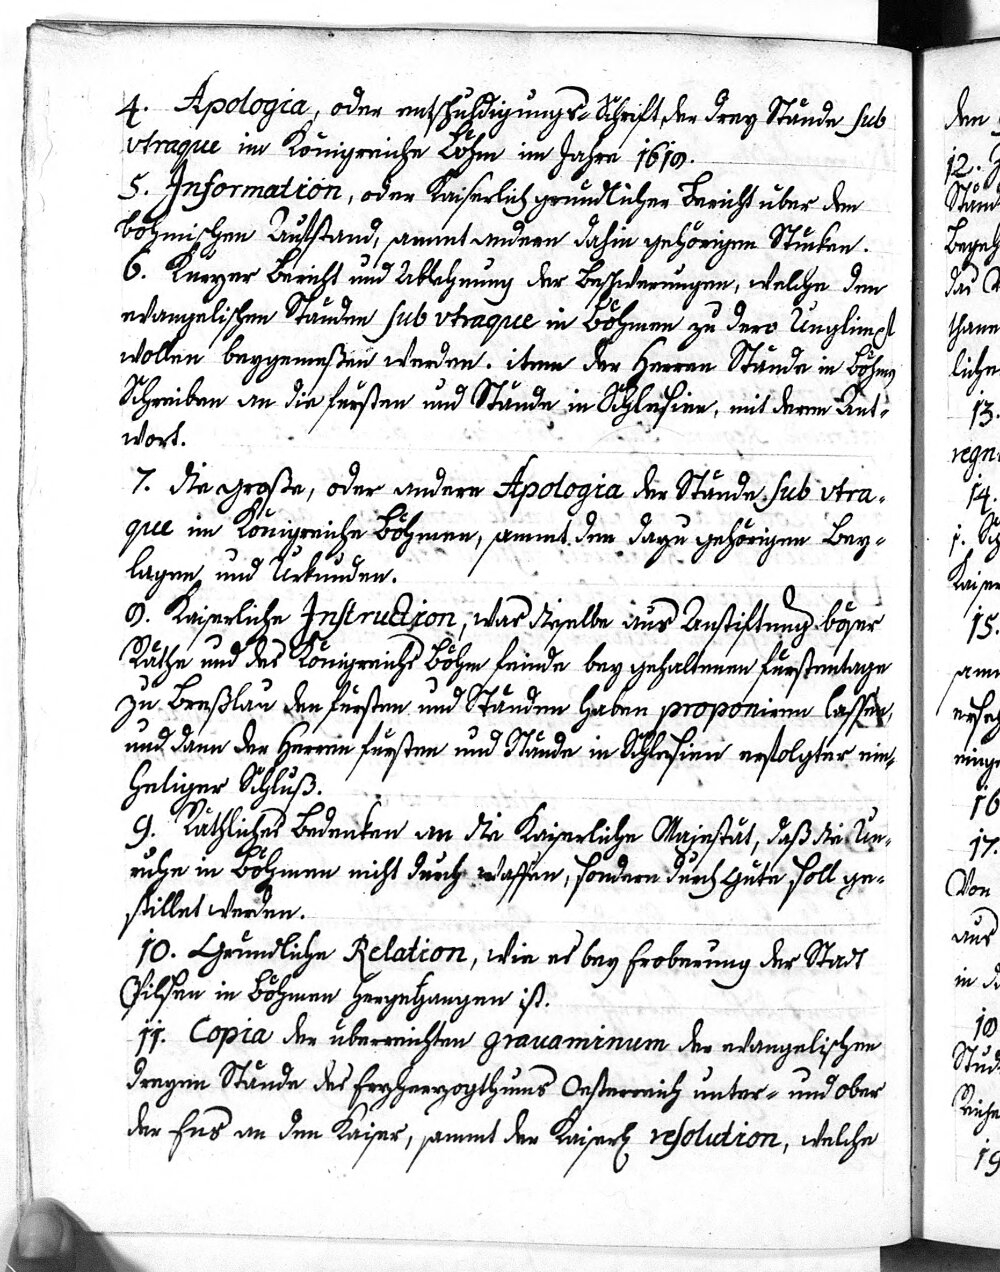 4. Apologia, oder entschuldigungs-Schrift, der drey Stände sub
utraque im Königreiche Böhm im Jahre 1618.
5. Information, oder Kaiserlich gründlicher Bericht über den
böhmischen Aufstand, sammt andern dahin gehörigen Stücken.
6. Kurzer Bericht und Ablehnung der Beschwerungen, welche den
evangelischen Ständen sub vtraque in Böhmen zu dero Unglimpf
wollen beygemeßen werden. item der Herren Stände in Böhmen
Schreiben an die fürsten und Stände in Schlesien, mit deren Ant-
wort.
7. Die große, oder andere Apologia der Stände sub vtra-
que im Königreiche Böhmen, sammt den dazu gehörigen Bey-
lagen und Urkunden.
8. Kaiserliche Instruction, was dieselbe aus Anstiftung böser
Räthe und des Königreichs Böhm feinde bey gehaltenen fürstentage
zu Breßlau den fürsten und Ständen haben proponiren lassen,
und dann der Herren fürsten und Stände in Schlesien erfolgter ein-
heliger Schluß.
9. Räthliches Bedenken an die Kaiserliche Majestät, daß die Un-
ruhe in Böhmen nicht durch waffen, sondern durch Güte soll ge-
stillet werden.
10. Gründliche Relation, wie es bey Eroberung der Stadt
Pilsen in Böhmen hergegangen ist.
11. Copia der überreichten grauaminum der evangelischen
dreyen Stände des Erzherzogthums Oesterreich unter- und ober
der Ens an den Kaiser, sammt der Kaiserl. resolution, welche
den
12.
Stän
Begeh
das
thane
liche
13.
regn
14.
Kaiser
15.
16
17.
Von
aus
in
18
Stud
19